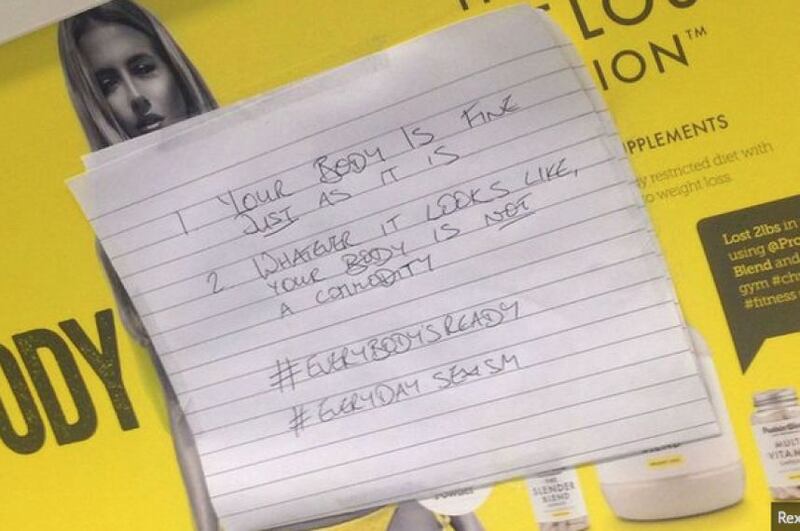 LOS
ION™
PPLEMENTS
y restricted diet with
o weight loss.
Lost 2lbs in
using @Pro
Blend and
gym #ch
#fitness
ODY
1. YOUR BODY IS FINE
JUST AS IT IS
2. WHATEVER IT LOOKS LIKE,
YOUR BODY IS NOT
A COMMODITY
#EVERYBODYSREADY
#EVERYDAY SEXISM
THE
SLENDER
BLEND
MULTI
VITA
Rex